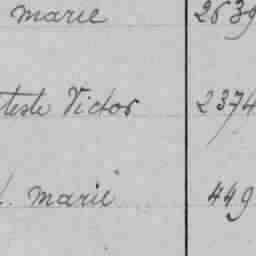 marie 2639
teste Victor 2374
l. marie 449